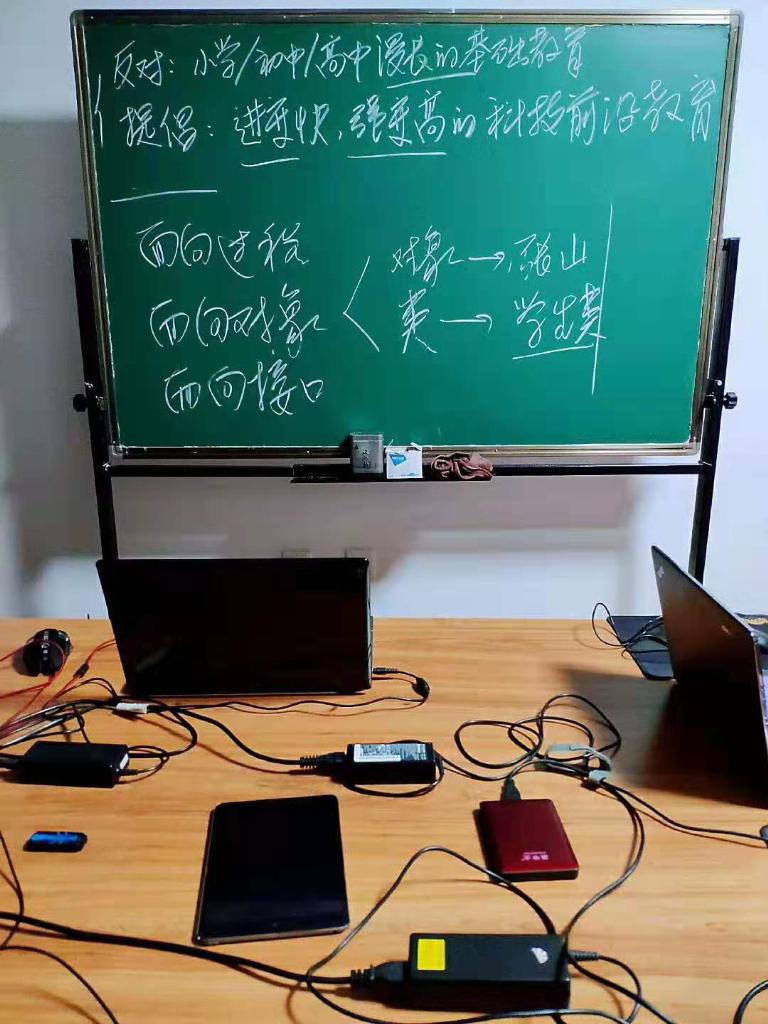 反对：小学/初中/高中漫长的基础教育
提倡：进度快，强度高的科技前沿教育
面向过程
面向对象
面向接口
对象→张山
类→学生类